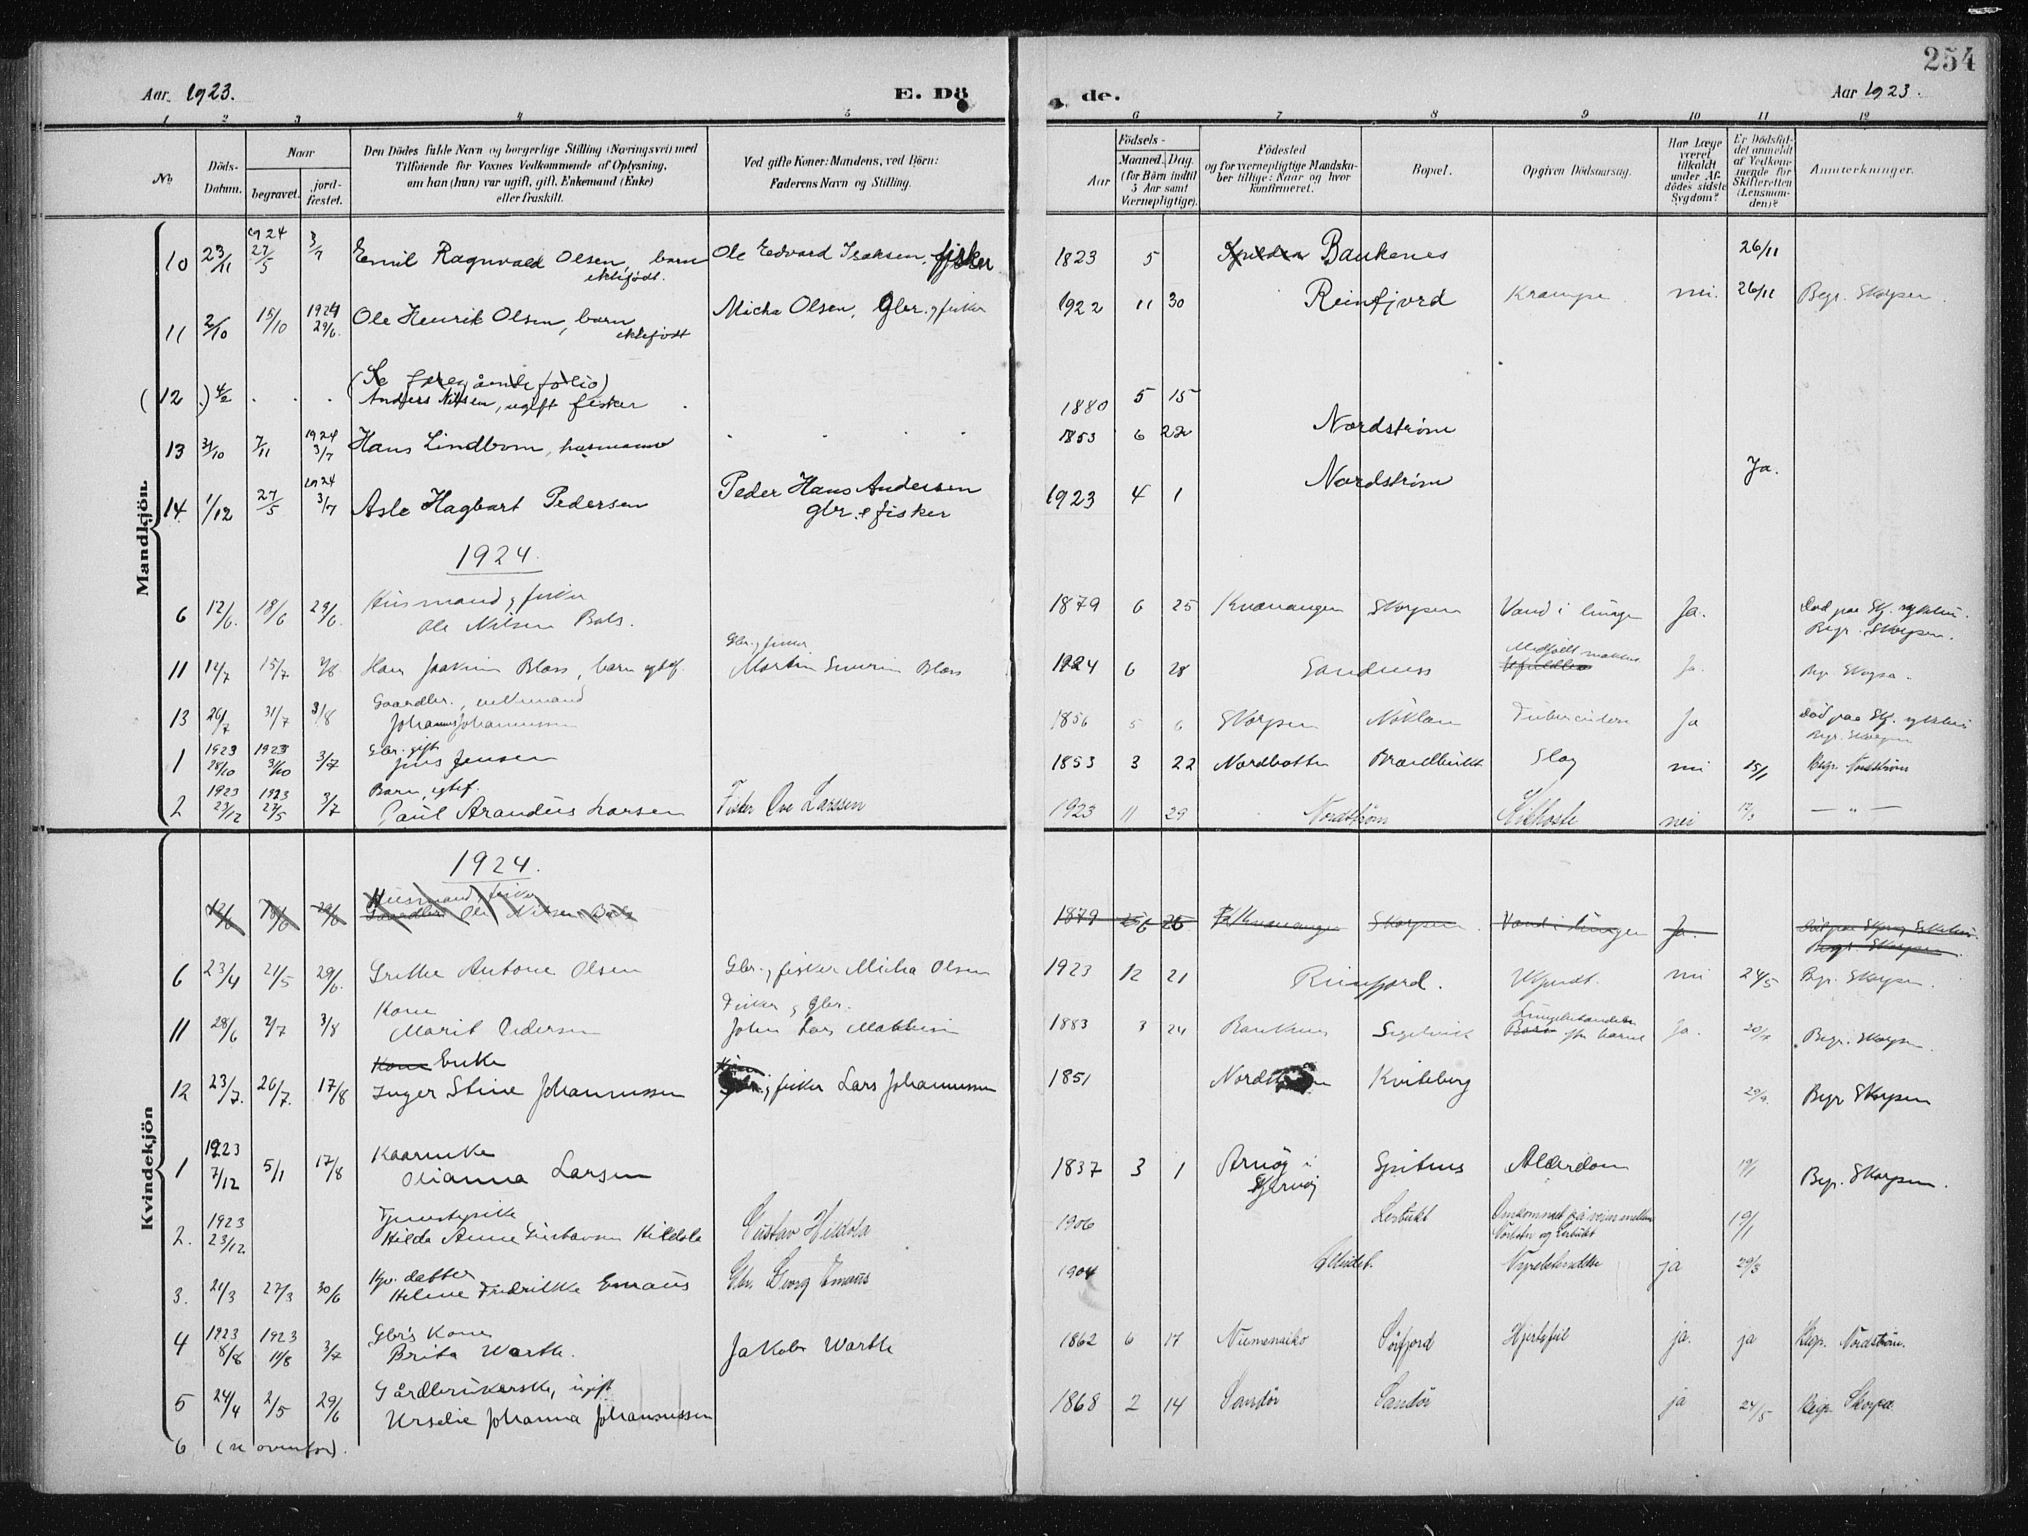 254
Aar 1923. E. Dö de. Aar 1923.
1 2 3 4 5 6 7 8 9 10 11 12
No. Döds-Datum. Naar begravet. jord-fæstet. Den Dödes fulde Navn og borgerlige Stilling (Næringsvei) med Tilföiende for Voxnes Vedkommende af Oplysning, om han (hun) var ugift, gift, Enkemand (Enke) eller fraskilt. Ved gifte Koner: Mandens, ved Börn: Faderens Navn og Stilling.
Födsels- Aar Maaned. Dag. (for Börn indtil 5 Aar samt Værnepligtige). Födested og for værnepligtige Mandskaber tillige: Naar og hvor konfirmeret. Bopæl. Opgiven Dödsaarsag. Har Læge været tilkaldt under Afdödes sidste Sygdom? Er Dödsfaldet anmeldt af Vedkommende for Skifteretten (Lensmanden)? Anmærkninger.
Mandkjön.
10 23/11 1924 27/5 3/7 Emil Ragnvald Olsen, barn ektefødt. Ole Edvard Isaksen, fisker 1823 5 Baukenes 26/11
11 2/10 15/10 1924 29/6. Ole Henrik Olsen, barn ektefødt Micha Olsen, Gbr. og fisker 1922 11 30 Reinfjord Krampe nei. 26/11 Begr. Skorpen.
(12.) 4/2 (Se foregående folio)
Anders Nilsen, ugift fisker. 1880 5 15
13 31/10 7/11 1924 3/7 Hans Lindbom, husmand 1853 6 22 Nordstrøm
14. 1/12 27/5 1924 3/7 Asle Hagbart Pedersen Peder Hans Andersen gbr. & fisker 1923 4 1 Nordstrøm Ja.
1924.
6 12/6. 18/6 29/6. Husmand og fisker
Ole Nilsen Bals. 1879 6 25 Kvænangen Skorpen Vand i lunge Ja. Død paa Sk. sykehus. Begr. Skorpen.
11 14/7 15/7 3/8 Hans Joakim Blass, barn egtef. Gbr. og fisker
Martin Severin Blass 1924 6 28 Sandnes Medfødt Ja. Begr. Skorpa.
13 26/7 31/7 3/8 Gaardbr., enkemand
Johannes Johannessen 1856 5 6 Skorpen Nøklan Tuberculose Ja Død paa Sk. sykehus
Begr. Skorpen
1 1923 28/10 1923 3/10 3/7 Gbr. gift
Jens Jensen 1853 3 22 Nordbotten Brandbukt Slag nei 15/1 Begr. Nordstrøm
2 1923 23/12 1923 27/5 3/7 Barn, egtef.
Paul Arandus Larsen Fisker Ove Larssen 1923 11 29 Nordstrøm Kikhoste nei 12/3 — " —
Kvindekjön
1924.
12/6 18/6 29/6 Husmand, fisker
Gaardbr. Ole Nilsen Bals 1879 6 26 Kvænangen Skorpen Vand i lungen Ja. Begr. Skorpen.
6 23/4 21/5 29/6. Grethe Antone Olsen Gbr. og fisker Micha Olsen 1923 12 21 Reinfjord. Ukjendt. nei 24/5 Begr. Skorpen.
11 28/6 2/7 3/8 Kone
Marit Pedersen Fisker og Gbr.
John Lars 1883 3 24 Baukenes Segelvik efter barsel Ja. Begr. Skorpen.
12 23/7. 26/7. 17/8 Kone Enke
Inger Stine Johannessen fisker Lars Johannessen 1851 Kviteberg 29/9. Begr Skorpen
1 1923 7/12 5/1 17/8 Kaarenke
Olianna Larsen 1837 3 1 Arnøy i Skjervøy Spitnes Alderdom Begr. Skorpen.
2. 1923 23/12 Tjenestepike
Hilda Anne Gustavsen Hildola Gustav Hildola 1906 Lerbukt Omkommet på veien mellem
og Lerbukt 19/1
3. 21/3 27/3 30/6 Gbr. datter
Heline Fredrikke Emaus Gbr. Georg Emaus 1904 Nyrebetendelse ja 29/3
4 1923 8/8 1923 11/8 3/7 Gbr's Kone
Brita Warthe. Jakob Warthe 1862 6 17 Niemenaiko Sørfjord Hjertefeil ja. ja Begr. Nordstrøm.
5 24/4 2/5 29/6 Gårdbrukerske, ugift
Urselie Johanna Johannessen 1868 2 14 Sandør Sandør ja 24/5 Begr. Skorpa
6 (se ovenfor).